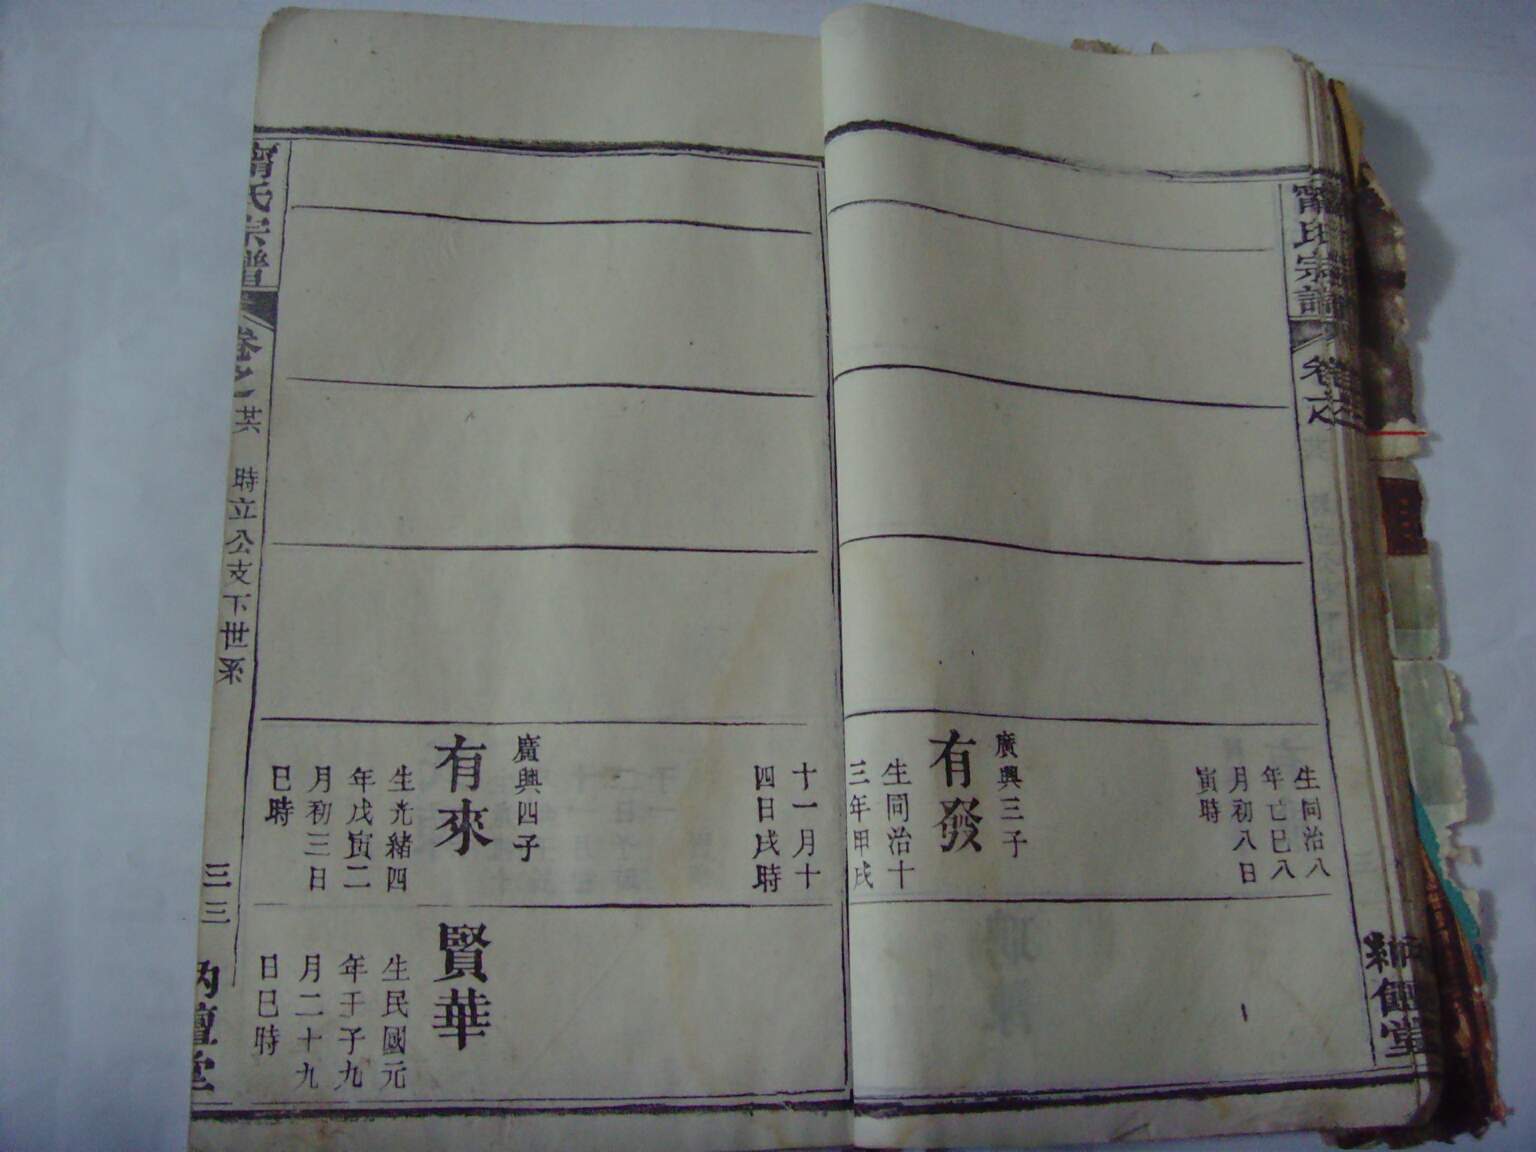 甯氏宗譜
卷之
生同治八
年亡巳八
月初八日
寅時
廣興三子
有發
生同治十
三年甲戌
十一月十
四日戌時
廣興四子
有來
生光緒四
年戊寅二
月初三日
巳時
賢華
生民國元
年壬子九
月二十九
日巳時
甯氏宗譜
卷之
時立公支下世系
三三